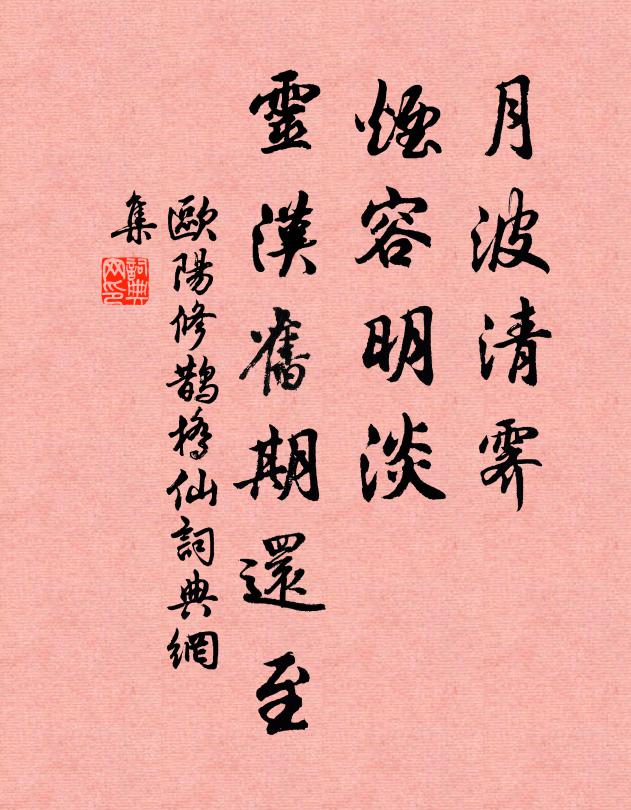 月波清霽
煙容明淡
靈漢舊期還至
歐陽修鵲橋仙詞典網
集
詞典
网印